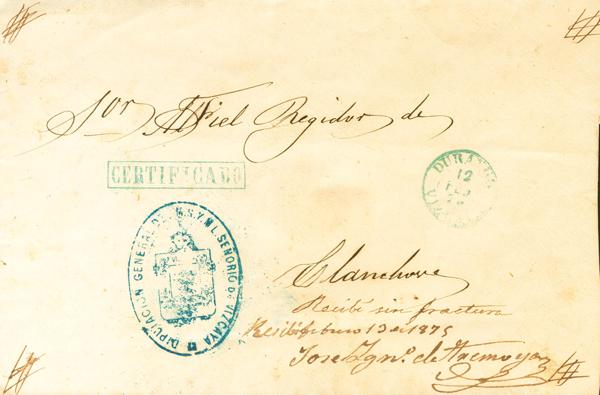 Sor. Fiel Regidor de
CERTIFICADO
DURANGO
12
FEB
DIPUTACION GENERAL DEL M.N.Y.M.L. SEÑORIO DE VIZCAYA
Elanchove
Recibi sin fractura
febrero 13 de 1875
Jose Ygno. de